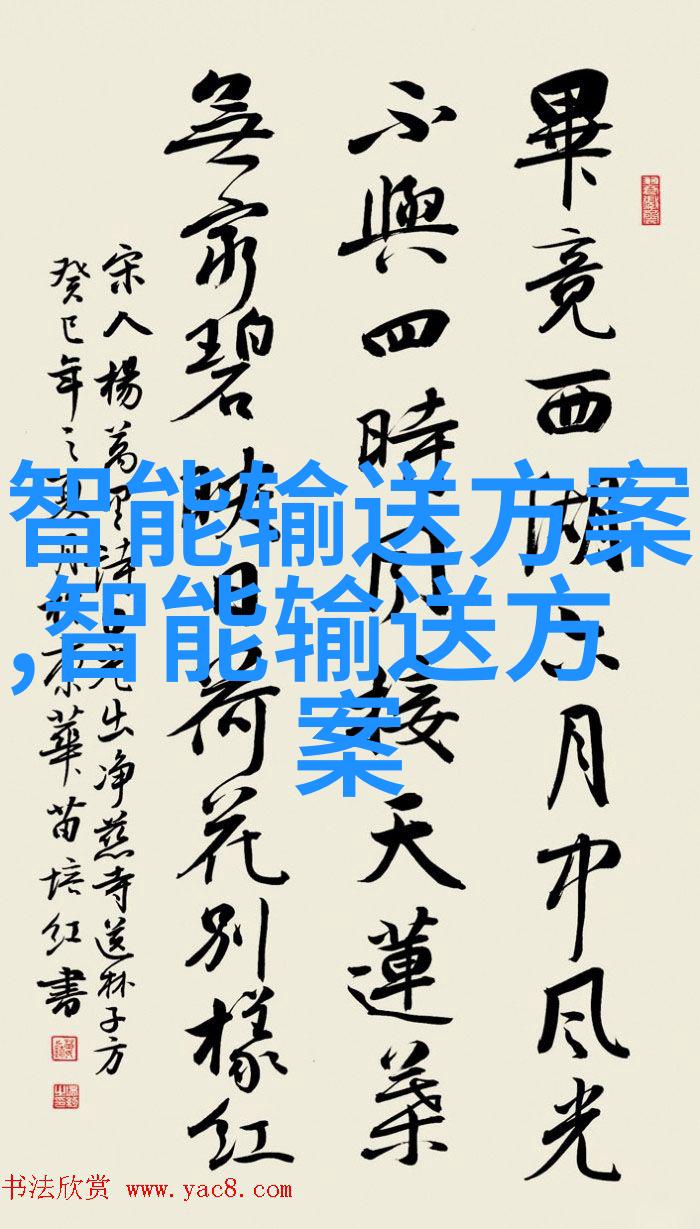 畢竟西湖六月中風光
不與四時同接天蓮葉
無窮碧映日荷花別樣紅
宋人楊萬里詩曉出净慈寺送林子方
癸巳年之夏月於京華苗培红書
智能输送方案
,智能输送方
案
书法欣赏 www.yac8.com